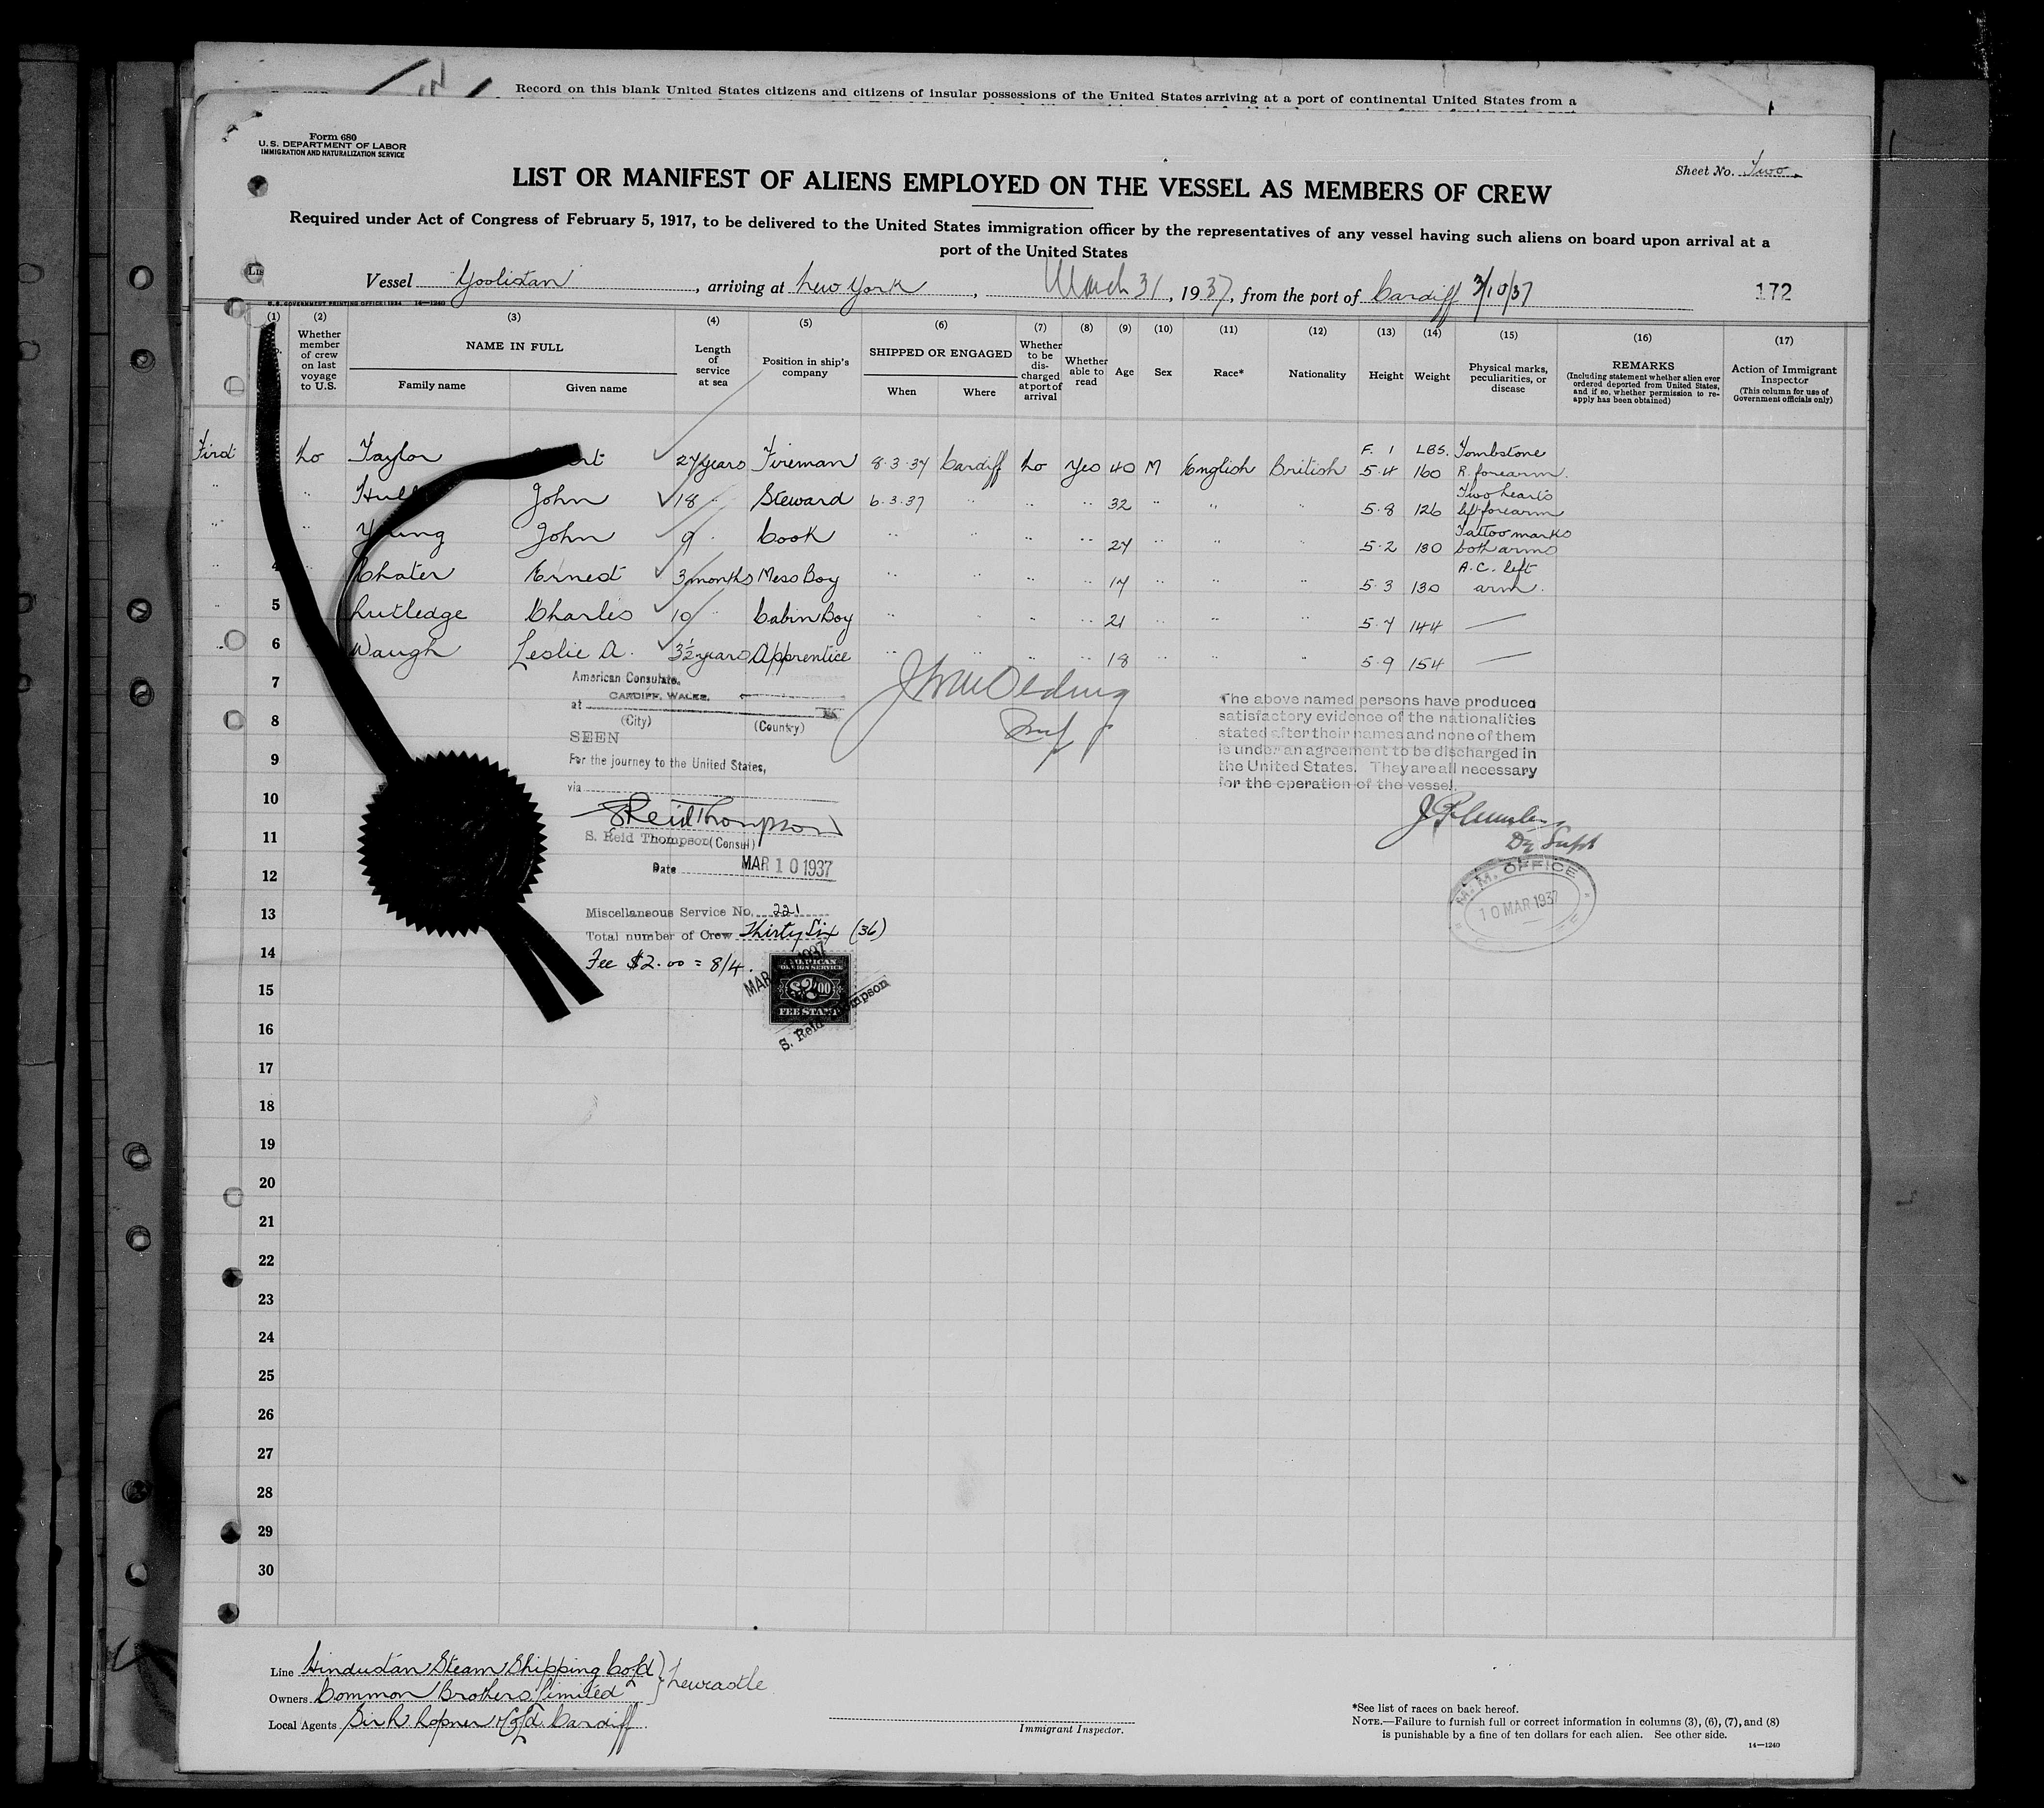 Record on this blank United States citizens and citizens of insular possessions of the United States arriving at a port of continental United States from a
Form 680
U.S. DEPARTMENT OF LABOR
IMMIGRATION AND NATURALIZATION SERVICE
Sheet No. Two
LIST OR MANIFEST OF ALIENS EMPLOYED ON THE VESSEL AS MEMBERS OF CREW
Required under Act of Congress of February 5, 1917, to be delivered to the United States immigration officer by the representatives of any vessel having such aliens on board upon arrival at a
port of the United States
Vessel Goolistan, arriving at New York, March 31, 1937, from the port of Cardiff 3/10/37
172
U.S. GOVERNMENT PRINTING OFFICE: 1934 14—1240
(1) (2) (3) (4) (5) (6) (7) (8) (9) (10) (11) (12) (13) (14) (15) (16) (17)
Whether member of crew on last voyage to U.S.
NAME IN FULL
Family name Given name
Length of service at sea
Position in ship's company
SHIPPED OR ENGAGED
When Where
Whether to be discharged at port of arrival
Whether able to read
Age
Sex
Race*
Nationality
Height
Weight
Physical marks, peculiarities, or disease
REMARKS
(Including statement whether alien ever ordered deported from United States, and if so, whether permission to reapply has been obtained)
Action of Immigrant Inspector
(This column for use of Government officials only)
First No Taylor 27 years Fireman 8.3.37 Cardiff No Yes 40 M English British F. I 5.4 LBS. 160 Tombstone R. forearm.
" " John 18 " Steward 6.3.37 " " " 32 " " " 5.8 126 Two hearts left forearm
" " Young John 9 " Cook " " " " 24 " " " 5.2 130 Tattoo marks both arms
4 Chater Ernest 3 months Mess Boy " " " " 17 " " " 5.3 130 A.C. left arm.
" 5 Rutledge Charles 10 " Cabin Boy " " " " 21 " " " 5.7 144 —
" 6 Waugh Leslie A. 3½ years Apprentice " " " " 18 " " " 5.9 154 —
7
8
9
10
11
12
13
14
15
16
17
18
19
20
21
22
23
24
25
26
27
28
29
30
American Consulate,
at CARDIFF, WALES.
(City) (Country)
SEEN
For the journey to the United States,
via
S Reid Thompson
S. Reid Thompson (Consul)
Date MAR 10 1937
Miscellaneous Service No. 221
Total number of Crew Thirty Six (36)
Fee $2.00 = 8/4.
AMERICAN
FOREIGN SERVICE
$2.00
FEE STAMP
MAR 1937
S. Reid Thompson
The above named persons have produced
satisfactory evidence of the nationalities
stated after their names and none of them
is under an agreement to be discharged in
the United States. They are all necessary
for the operation of the vessel.
Dy Supt
M. M. OFFICE
10 MAR 1937
Line Hindustan Steam Shipping Co Ld } Newcastle
Owners Common Brothers Limited
Local Agents Sir R. Ropner & Co Ld. Cardiff.
Immigrant Inspector.
*See list of races on back hereof.
NOTE.—Failure to furnish full or correct information in columns (3), (6), (7), and (8)
is punishable by a fine of ten dollars for each alien. See other side.
14—1240